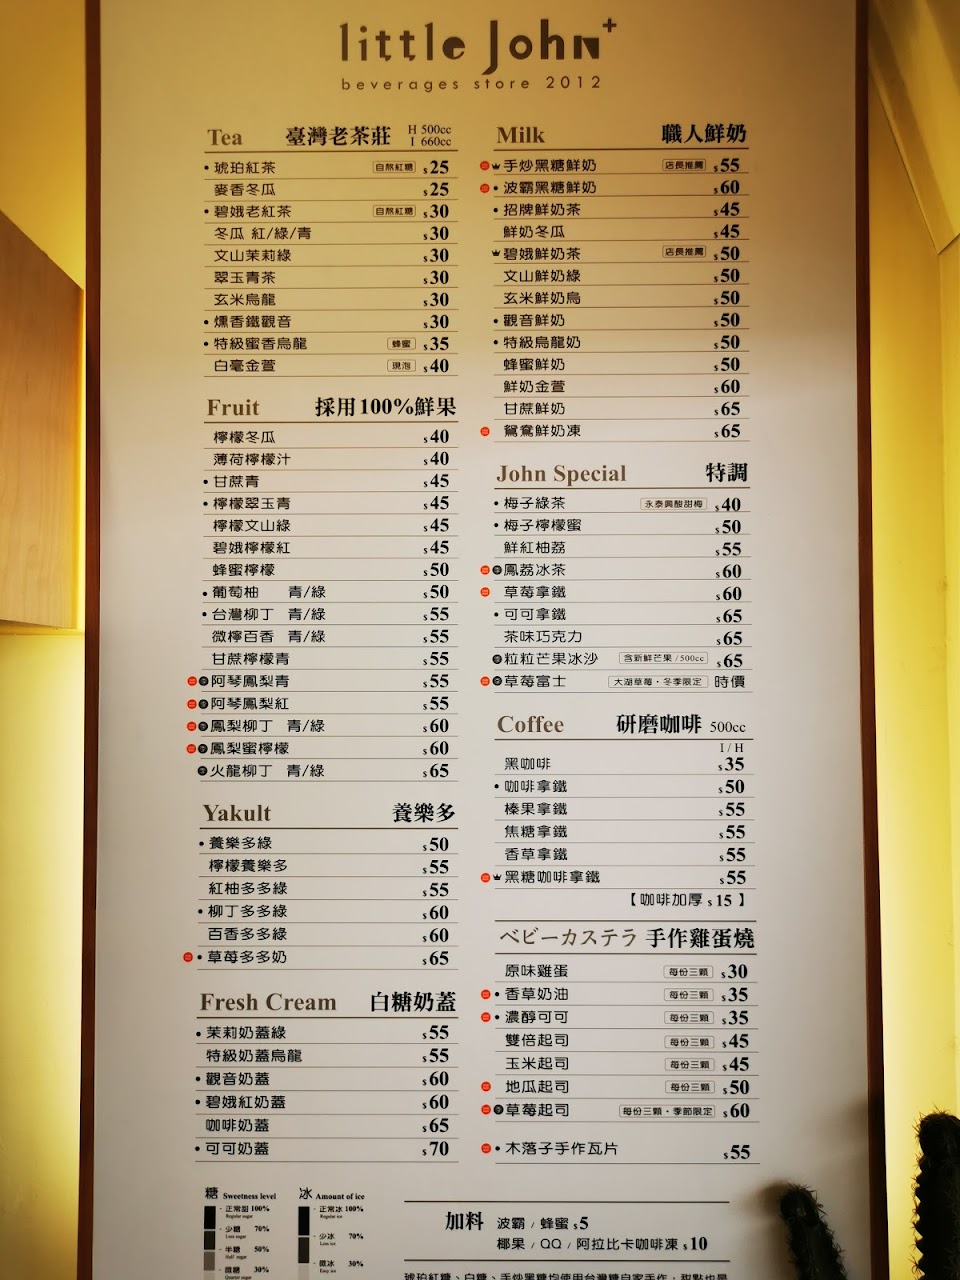 little John+
beverages store 2012
Tea 臺灣老茶莊 H 500cc I 660cc
• 琥珀紅茶 自熬紅糖 $25
麥香冬瓜 $25
• 碧娥老紅茶 自熬紅糖 $30
冬瓜 紅/綠/青 $30
文山茉莉綠 $30
翠玉青茶 $30
玄米烏龍 $30
• 燻香鐵觀音 $30
• 特級蜜香烏龍 蜂蜜 $35
白毫金萱 現泡 $40
Fruit 採用100%鮮果
檸檬冬瓜 $40
薄荷檸檬汁 $40
• 甘蔗青 $45
• 檸檬翠玉青 $45
檸檬文山綠 $45
碧娥檸檬紅 $45
蜂蜜檸檬 $50
• 葡萄柚 青/綠 $50
• 台灣柳丁 青/綠 $55
微檸百香 青/綠 $55
甘蔗檸檬青 $55
阿琴鳳梨青 $55
阿琴鳳梨紅 $55
鳳梨柳丁 青/綠 $60
鳳梨蜜檸檬 $60
火龍柳丁 青/綠 $65
Yakult 養樂多
• 養樂多綠 $50
檸檬養樂多 $55
紅柚多多綠 $55
• 柳丁多多綠 $60
百香多多綠 $60
• 草莓多多奶 $65
Fresh Cream 白糖奶蓋
• 茉莉奶蓋綠 $55
特級奶蓋烏龍 $55
• 觀音奶蓋 $60
• 碧娥紅奶蓋 $60
咖啡奶蓋 $65
• 可可奶蓋 $70
Milk 職人鮮奶
手炒黑糖鮮奶 店長推薦 $55
• 波霸黑糖鮮奶 $60
• 招牌鮮奶茶 $45
鮮奶冬瓜 $45
碧娥鮮奶茶 店長推薦 $50
文山鮮奶綠 $50
玄米鮮奶烏 $50
• 觀音鮮奶 $50
• 特級烏龍奶 $50
蜂蜜鮮奶 $50
鮮奶金萱 $60
甘蔗鮮奶 $65
鴛鴦鮮奶凍 $65
John Special 特調
• 梅子綠茶 永泰興酸甜梅 $40
• 梅子檸檬蜜 $50
鮮紅柚荔 $55
鳳荔冰茶 $60
草莓拿鐵 $60
• 可可拿鐵 $65
茶味巧克力 $65
粒粒芒果冰沙 含新鮮芒果/500cc $65
草莓富士 大湖草莓・冬季限定 時價
Coffee 研磨咖啡 500cc
I / H
黑咖啡 $35
• 咖啡拿鐵 $50
榛果拿鐵 $55
焦糖拿鐵 $55
香草拿鐵 $55
黑糖咖啡拿鐵 $55
【 咖啡加厚 $15 】
ベビーカステラ 手作雞蛋燒
原味雞蛋 每份三顆 $30
• 香草奶油 每份三顆 $35
• 濃醇可可 每份三顆 $35
雙倍起司 每份三顆 $45
玉米起司 每份三顆 $45
地瓜起司 每份三顆 $50
草莓起司 每份三顆・季節限定 $60
• 木落子手作瓦片 $55
糖 Sweetness level
正常甜 100%
Regular sugar
少糖 70%
Less sugar
半糖 50%
Half sugar
微糖 30%
Quarter sugar
冰 Amount of ice
正常冰 100%
Regular ice
少冰 70%
Less ice
微冰 30%
Easy ice
加料 波霸 / 蜂蜜 $5
椰果 / QQ / 阿拉比卡咖啡凍 $10
琥珀紅糖、白糖、手炒黑糖均使用台灣糖自家手作，甜點也是